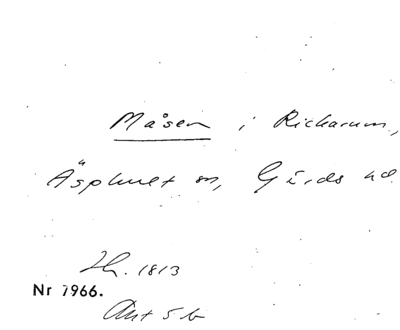 Måsen i Rickarum,
Äsphult sn, Gärds hd
Lh. 1813
Nr 7966.
Akt 5 b